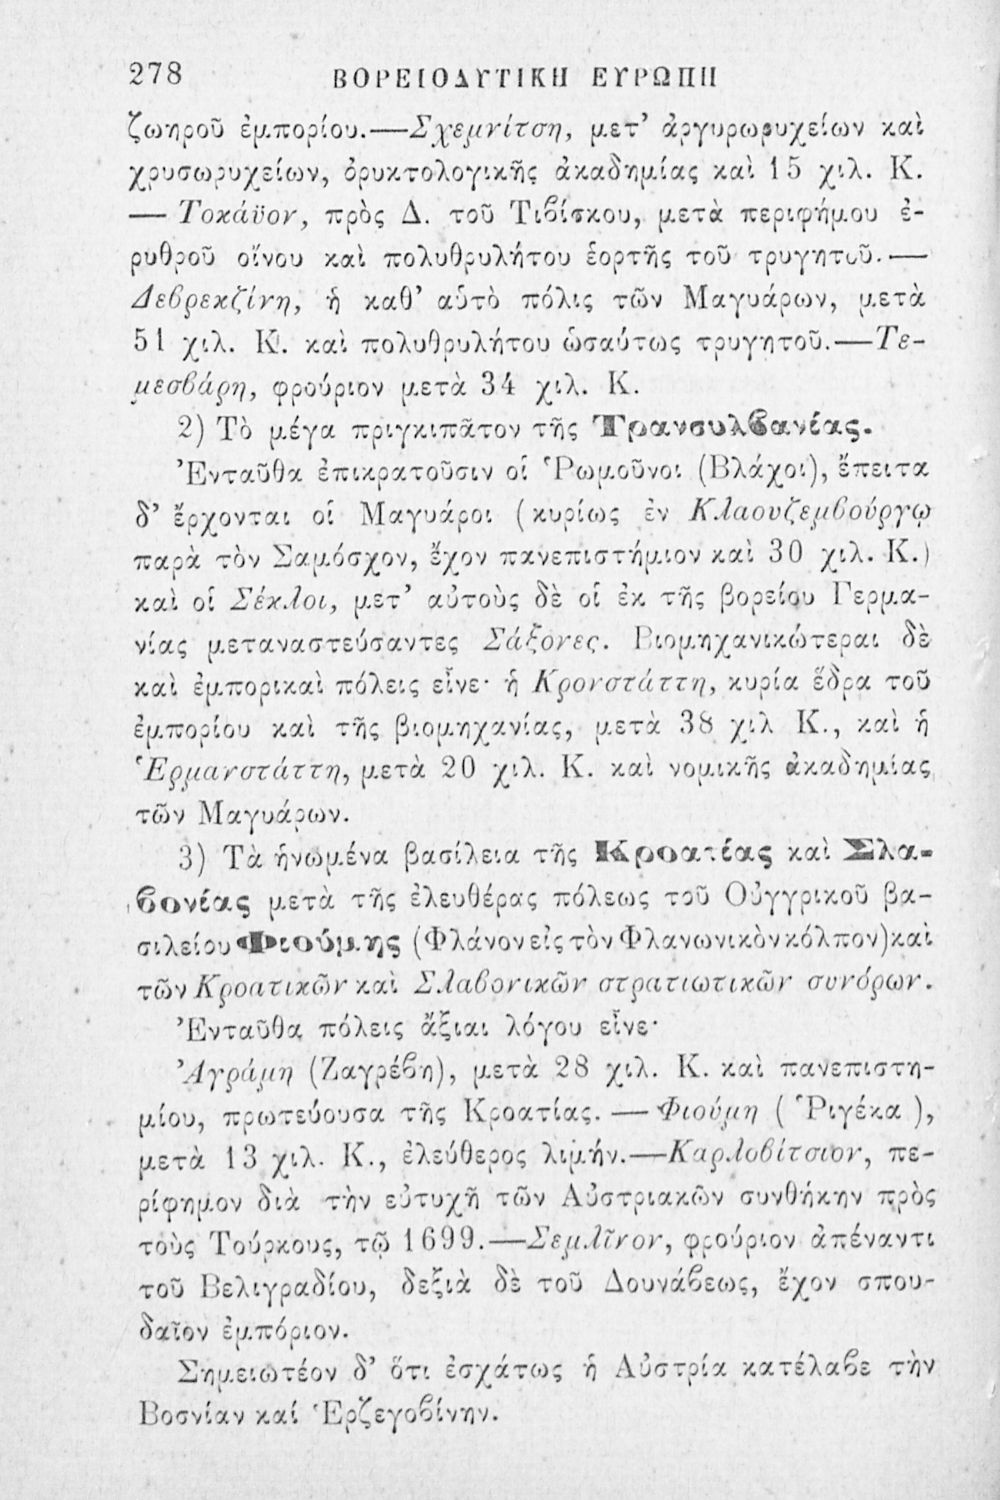 278 ΒΟΡΕΙΟΔΥΤΙΚΗ ΕΥΡΩΠΗ
ζωηροῦ ἐμπορίου.—Σχεμνίτση, μετ’ ἀργυρωρυχείων καὶ
χρυσωρυχείων, ὀρυκτολογικῆς ἀκαδημίας καὶ 15 χιλ. Κ.
— Τοκάϋον, πρὸς Δ. τοῦ Τιβίσκου, μετὰ περιφήμου ἐ-
ρυθροῦ οἴνου καὶ πολυθρυλήτου ἑορτῆς τοῦ τρυγητοῦ.—
Δεβρεκζίνη, ἡ καθ’ αὑτὸ πόλις τῶν Μαγυάρων, μετὰ
51 χιλ. Κ. καὶ πολυθρυλήτου ὡσαύτως τρυγητοῦ.—Τε-
μεσβάρη, φρούριον μετὰ 34 χιλ. Κ.
2) Τὸ μέγα πριγκιπᾶτον τῆς Τρανσυλβανίας.
Ἐνταῦθα ἐπικρατοῦσιν οἱ Ῥωμοῦνοι (Βλάχοι), ἔπειτα
δ’ ἔρχονται οἱ Μαγυάροι (κυρίως ἐν Κλαουζεμβούργῳ
παρὰ τὸν Σαμόσχον, ἔχον πανεπιστήμιον καὶ 30 χιλ. Κ.)
καὶ οἱ Σέκλοι, μετ’ αὐτοὺς δὲ οἱ ἐκ τῆς βορείου Γερμα-
νίας μεταναστεύσαντες Σάξονες. Βιομηχανικώτεραι δὲ
καὶ ἐμπορικαὶ πόλεις εἶνε· ἡ Κρονστάττη, κυρία ἕδρα τοῦ
ἐμπορίου καὶ τῆς βιομηχανίας, μετὰ 38 χιλ Κ., καὶ ἡ
Ἑρμανστάττη, μετὰ 20 χιλ. Κ. καὶ νομικῆς ἀκαδημίας
τῶν Μαγυάρων.
3) Τὰ ἡνωμένα βασίλεια τῆς Κροατίας καὶ Σλα-
βονίας μετὰ τῆς ἐλευθέρας πόλεως τοῦ Οὐγγρικοῦ βα-
σιλείου Φιούμης (Φλάνον εἰς τὸν Φλανωνικὸν κόλπον) καὶ
τῶν Κροατικῶν καὶ Σλαβονικῶν στρατιωτικῶν συνόρων.
Ἐνταῦθα πόλεις ἄξιαι λόγου εἶνε·
Ἀγράμη (Ζαγρέβη), μετὰ 28 χιλ. Κ. καὶ πανεπιστη-
μίου, πρωτεύουσα τῆς Κροατίας. — Φιούμη ( Ῥιγέκα ),
μετὰ 13 χιλ. Κ., ἐλεύθερος λιμήν.—Καρλοβίτσιον, πε-
ρίφημον διὰ τὴν εὐτυχῆ τῶν Αὐστριακῶν συνθήκην πρὸς
τοὺς Τούρκους, τῷ 1699.—Σεμλῖνον, φρούριον ἀπέναντι
τοῦ Βελιγραδίου, δεξιὰ δὲ τοῦ Δουνάβεως, ἔχον σπου-
δαῖον ἐμπόριον.
Σημειωτέον δ’ ὅτι ἐσχάτως ἡ Αὐστρία κατέλαβε τὴν
Βοσνίαν καί Ἑρζεγοβίνην.